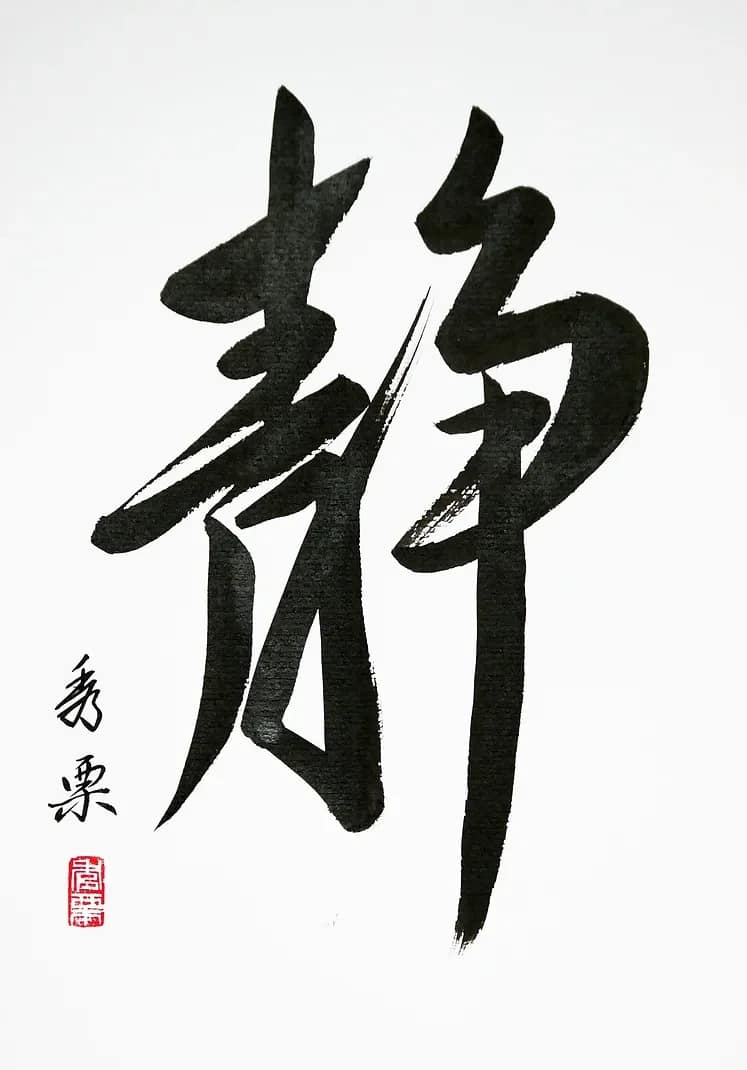 静
秀栗